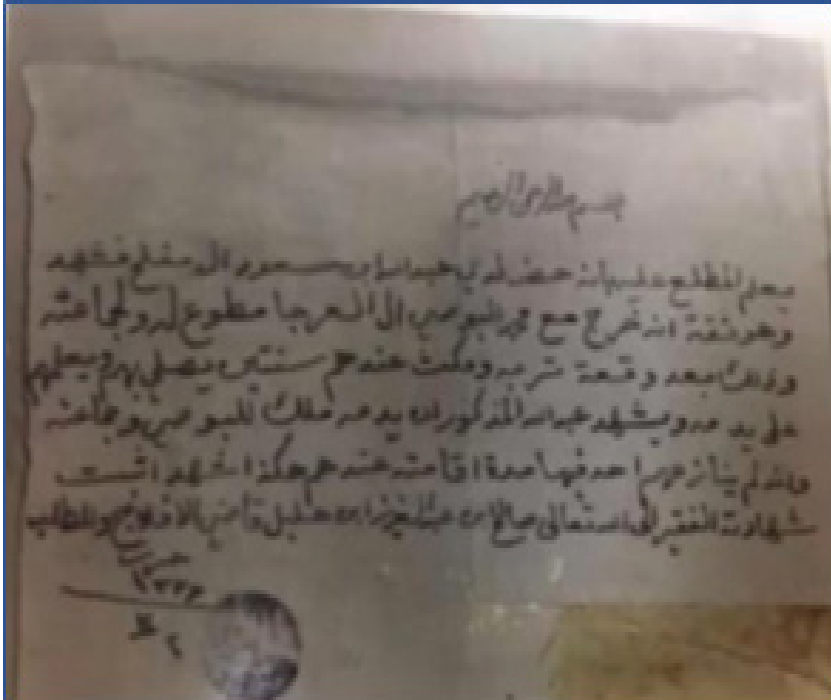 بسم الله الرحمن الرحيم
يعلم المطلع عليه بانه حضر لدي عبدالله ابن سعود ال مفلح فشهد
وهو ثقة انه خرج مع محمد البوصي الى العرجا مطوع له ولجماعته
وذلك بعد وقعة تربه ومكث عندهم سنتين يصلي بهم ويعلمهم
على يد مه ويشهد عبدالله المذكور ان يد مه ملك للبوصي وجماعته
وانه لم ينازعهم احد فيها مدة اقامته عندهم هكذا شهد اثبت
شهادته الفقير الى الله تعالى صالح ابن عبدالعزيز ابن قاضي
١٣٣٦